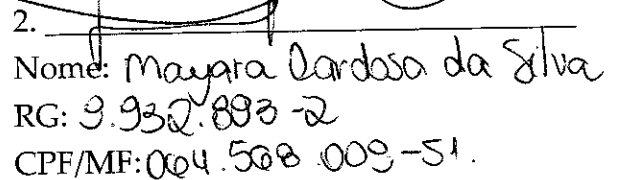 2.
Nome: Mayara Cardoso da Silva
RG: 9.932.893-2
CPF/MF: 064.568.009-51.